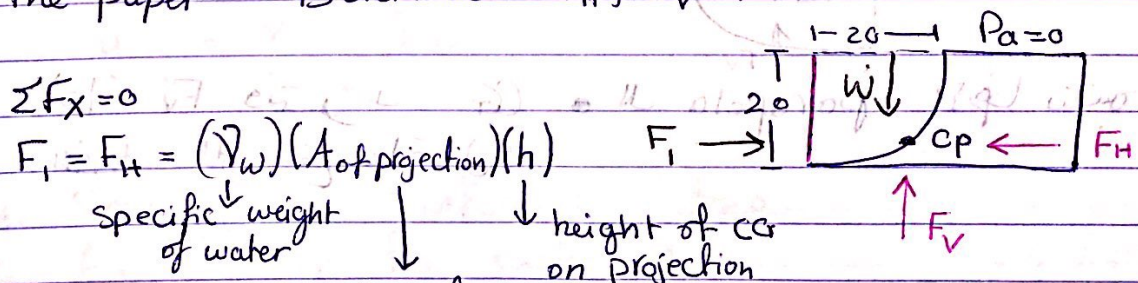 The paper
ΣFx=0
F₁ = F_H = (γ_w)(A of projection)(h)
specific weight
of water
height of CG
on projection
20
Pa=0
20
W
F₁
CP
F_H
F_V